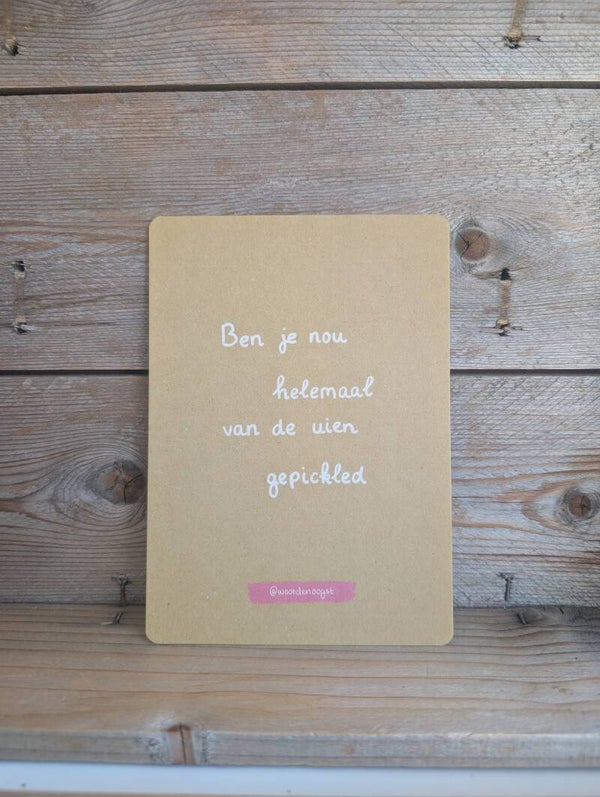 Ben je nou
helemaal
van de uien
gepickled
@woordenoogst